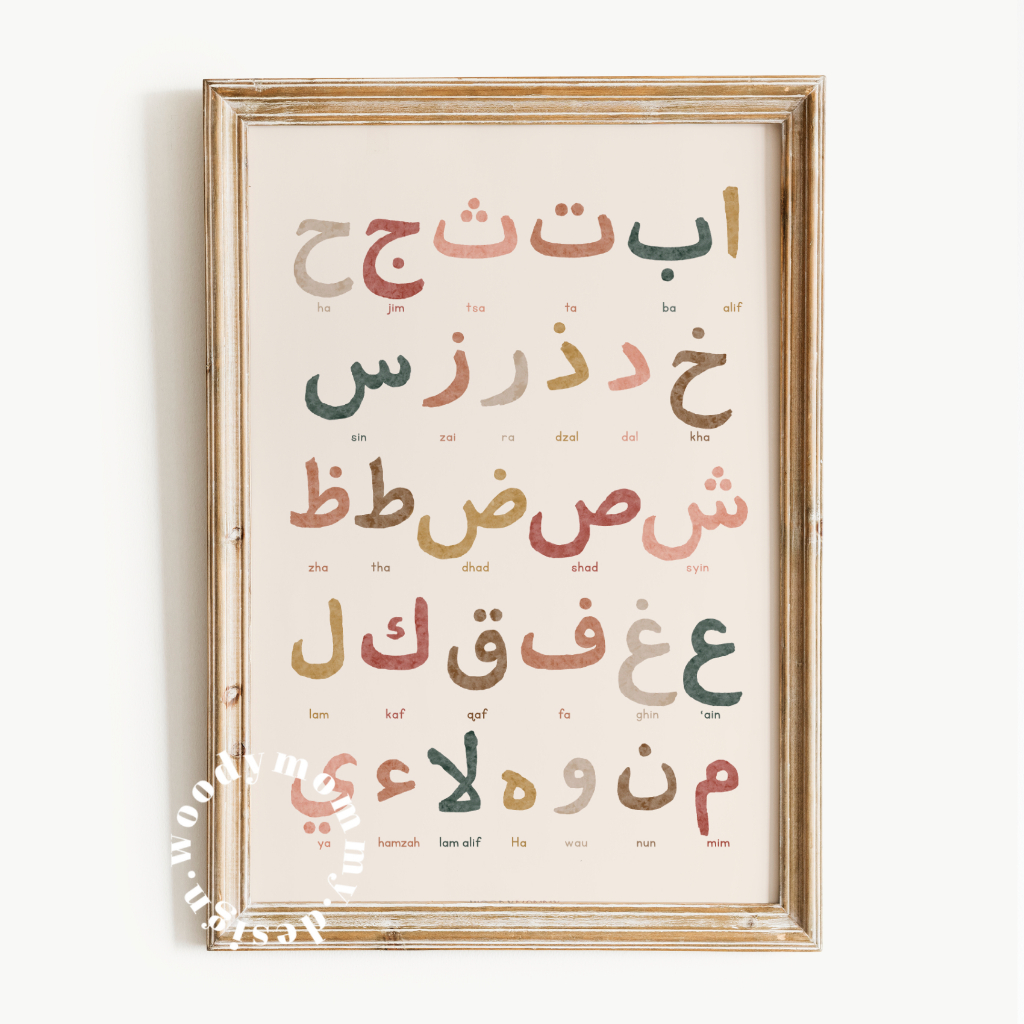 ا ب ت ث ج ح
ha jim tsa ta ba alif
خ د ذ ر ز س
sin zai ra dzal dal kha
ش ص ض ط ظ
zha tha dhad shad syin
ع غ ف ق ك ل
lam kaf qaf fa ghin 'ain
م ن و ه لا ء ي
ya hamzah lam alif Ha wau nun mim
woodymommy.design.